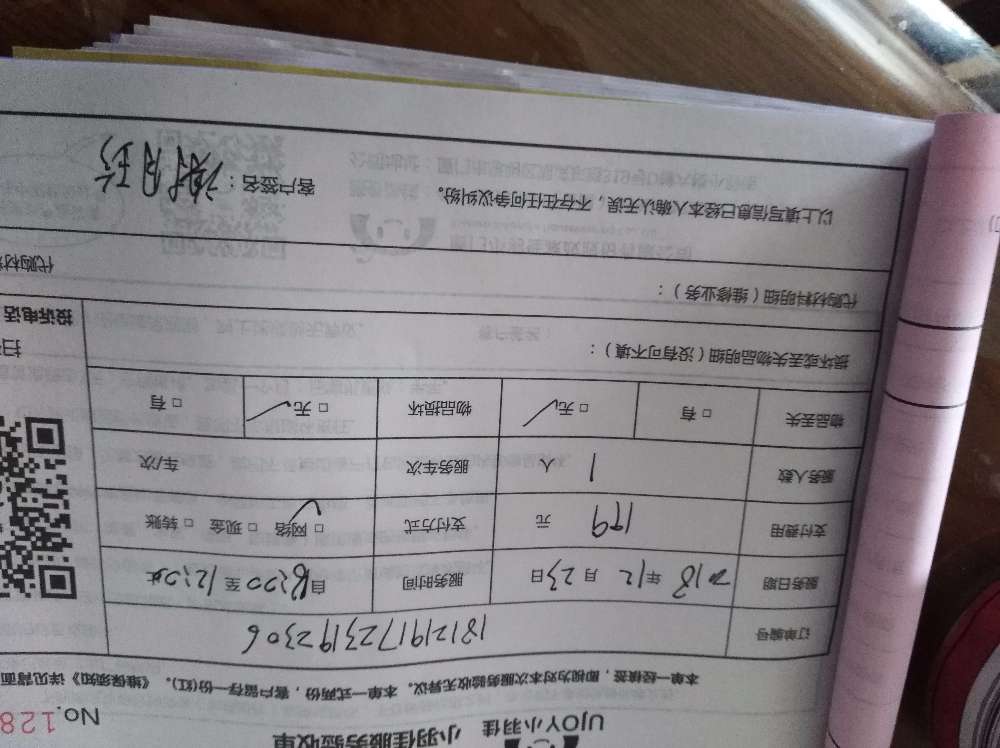 UJOY小羽佳 小羽佳服务验收单
No.128
本单一经核签，即视为对本次服务验收无异议。本单一式两份，客户留存一份(红)。《维保须知》详见背面
订单编号 1812191723192306
服务日期 2018年12月23日 服务时间 自8:20至12:20止
支付费用 199元 支付方式 □网络 □现金 □转账
服务人数 1人 服务车次 车/次
物品丢失 □有 □无 物品损坏 □无 □有
损坏或丢失物品明细（没有可不填）：
代购材料明细（维修业务）：
代购材料
以上填写信息已经本人确认无误，不存在任何争议纠纷。 客户签名：谢月珍
投诉电话